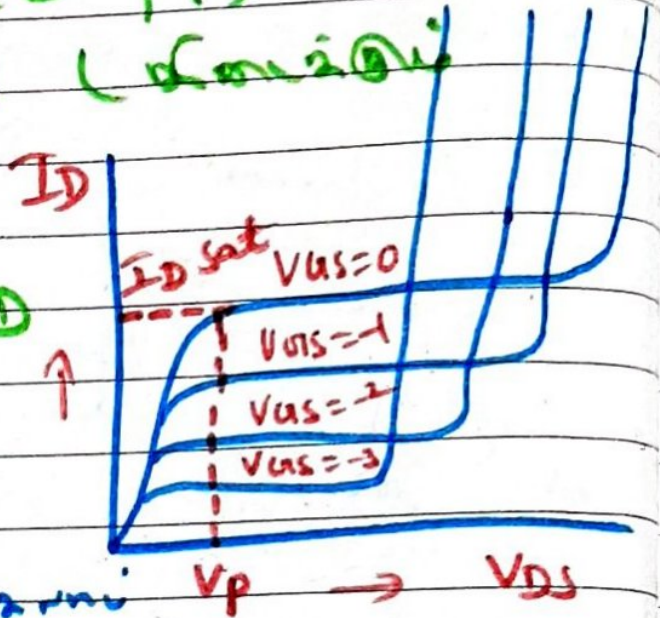 ID
ID sat
VGS=0
VGS=-1
VGS=-2
VGS=-3
D
↑
VP → VDS